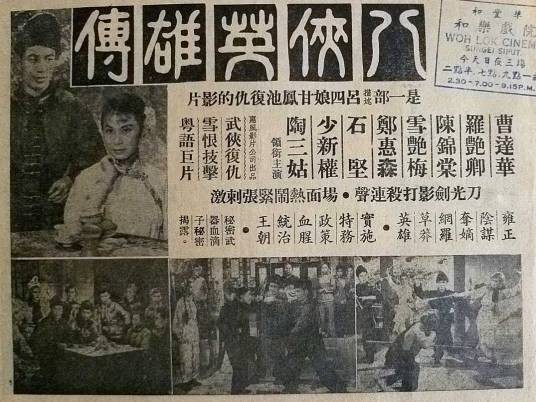 和樂戲院
WOH LOK CINEMA
SUNGEI SIPUT.
今天日夜三場
二點半.七點.九點一
2.30-7.00-9.15 P.M.
八俠英雄傳
是一部描述呂四娘甘鳳池復仇的影片
曹達華
羅艷卿
陳錦棠
雪艷梅
鄭惠森
石堅
少新權
陶三姑
領銜主演
風影片公司出品
武俠復仇
雪恨技擊
粵語巨片
刀光劍影打殺連聲・場面熱鬧緊張刺激
雍正
陰謀
奪嫡
網羅
草莽
英雄
實施
特務
政策
血腥
統治
王朝
秘密武
器血滴
子秘密
揭露。